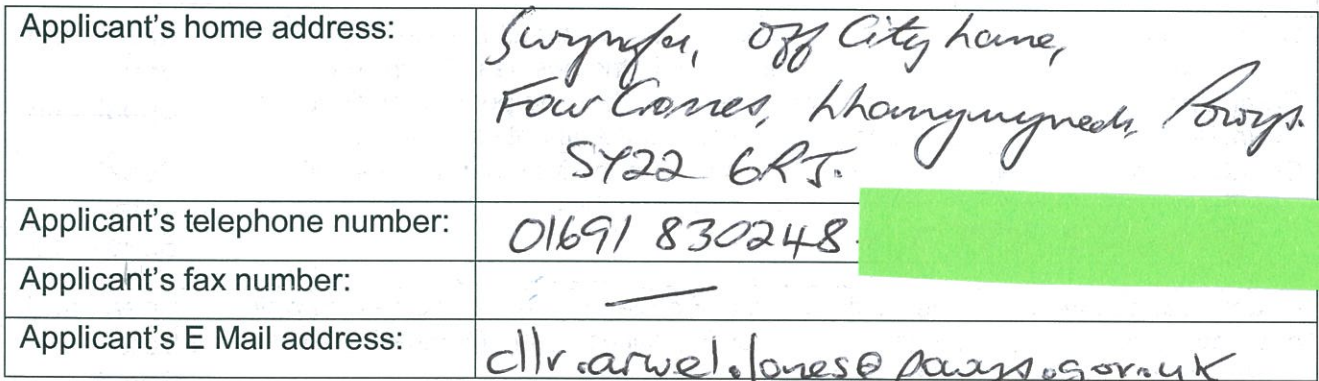 Applicant's home address:
off City Lane,
Four Crosses, Llanymynech, Powys.
SY22 6RJ.
Applicant's telephone number: 01691 830248.
Applicant's fax number: —
Applicant's E Mail address: cllr.arwel.jones@powys.gov.uk